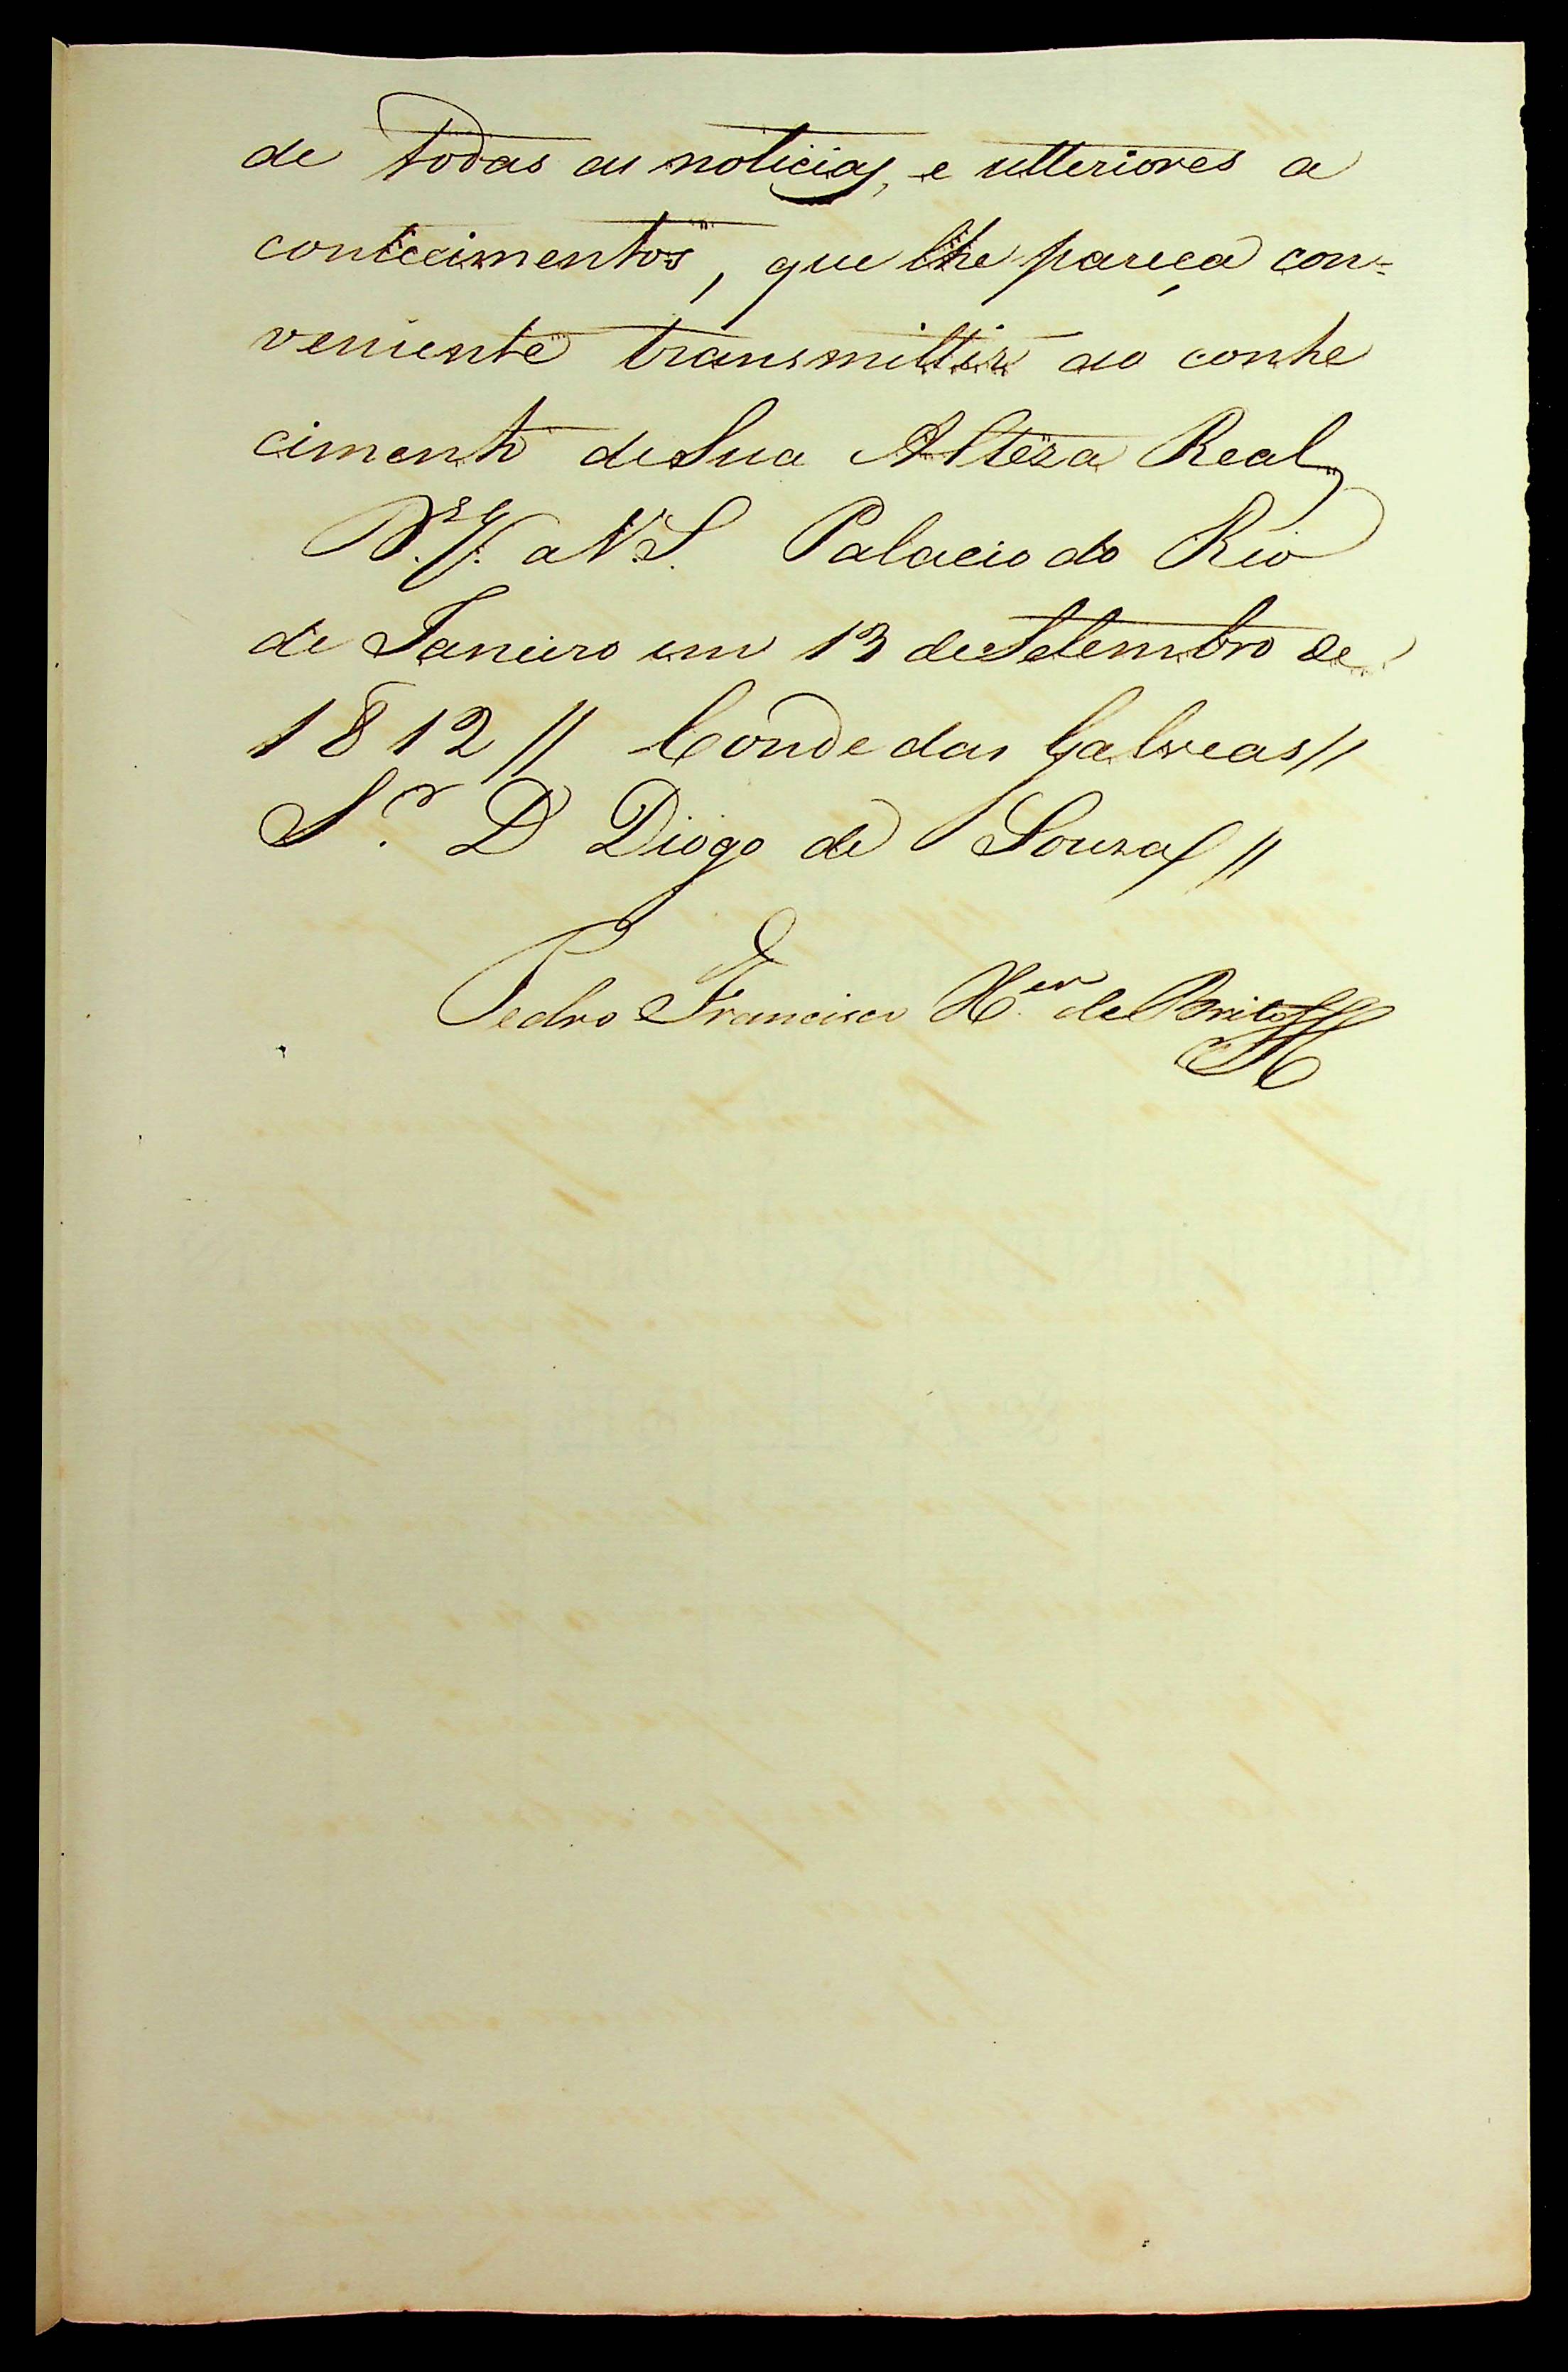 de todas as noticias, e ulteriores a
contecimentos, que lhe pareça con=
veniente transmittir ao conhe
cimento de Sua Alteza Real
a V. S. Palacio do Rio
de Janeiro em 13 de Setembro de
1812 // Conde das Galveas //
S.r D Diogo de Souza //
Pedro Francisco X.er de Brito